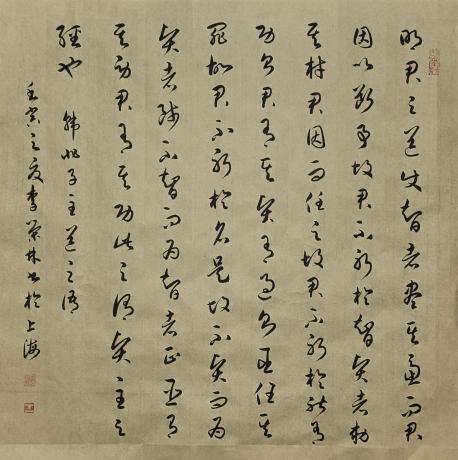 明君之道使智者盡其慮而君
因以斷事故君不窮於智賢者勅
其材君因而任之故君不窮於能有
功則君有其賢有過則臣任其
罪故君不窮於名是故不賢而為
賢者師不智而為智者正臣有
其勞君有其功此之謂賢主之
經也 韓非子主道之語
壬寅之夏李榮林書於上海